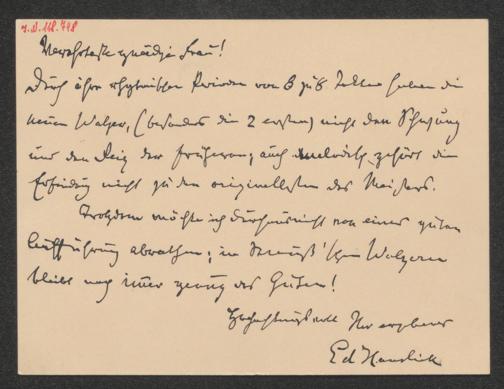 I.N. 118.748
Verehrteste gnädige Frau!
Durch ihre rhythmischen Perioden von 8 zu 8 Takten haben die
neuen Walzer, (besonders die 2 ersten) nicht den Schwung
und den Reiz der früheren; auch melodisch gehört die
Erfindung nicht zu den originellsten des Meisters.
Trotzdem möchte ich durchaus nicht von einer guten
Aufführung abrathen; in Strauß'schen Walzern
bleibt noch immer genug des Guten!
Hochachtungsvoll Ihr ergebener
Ed Hanslick